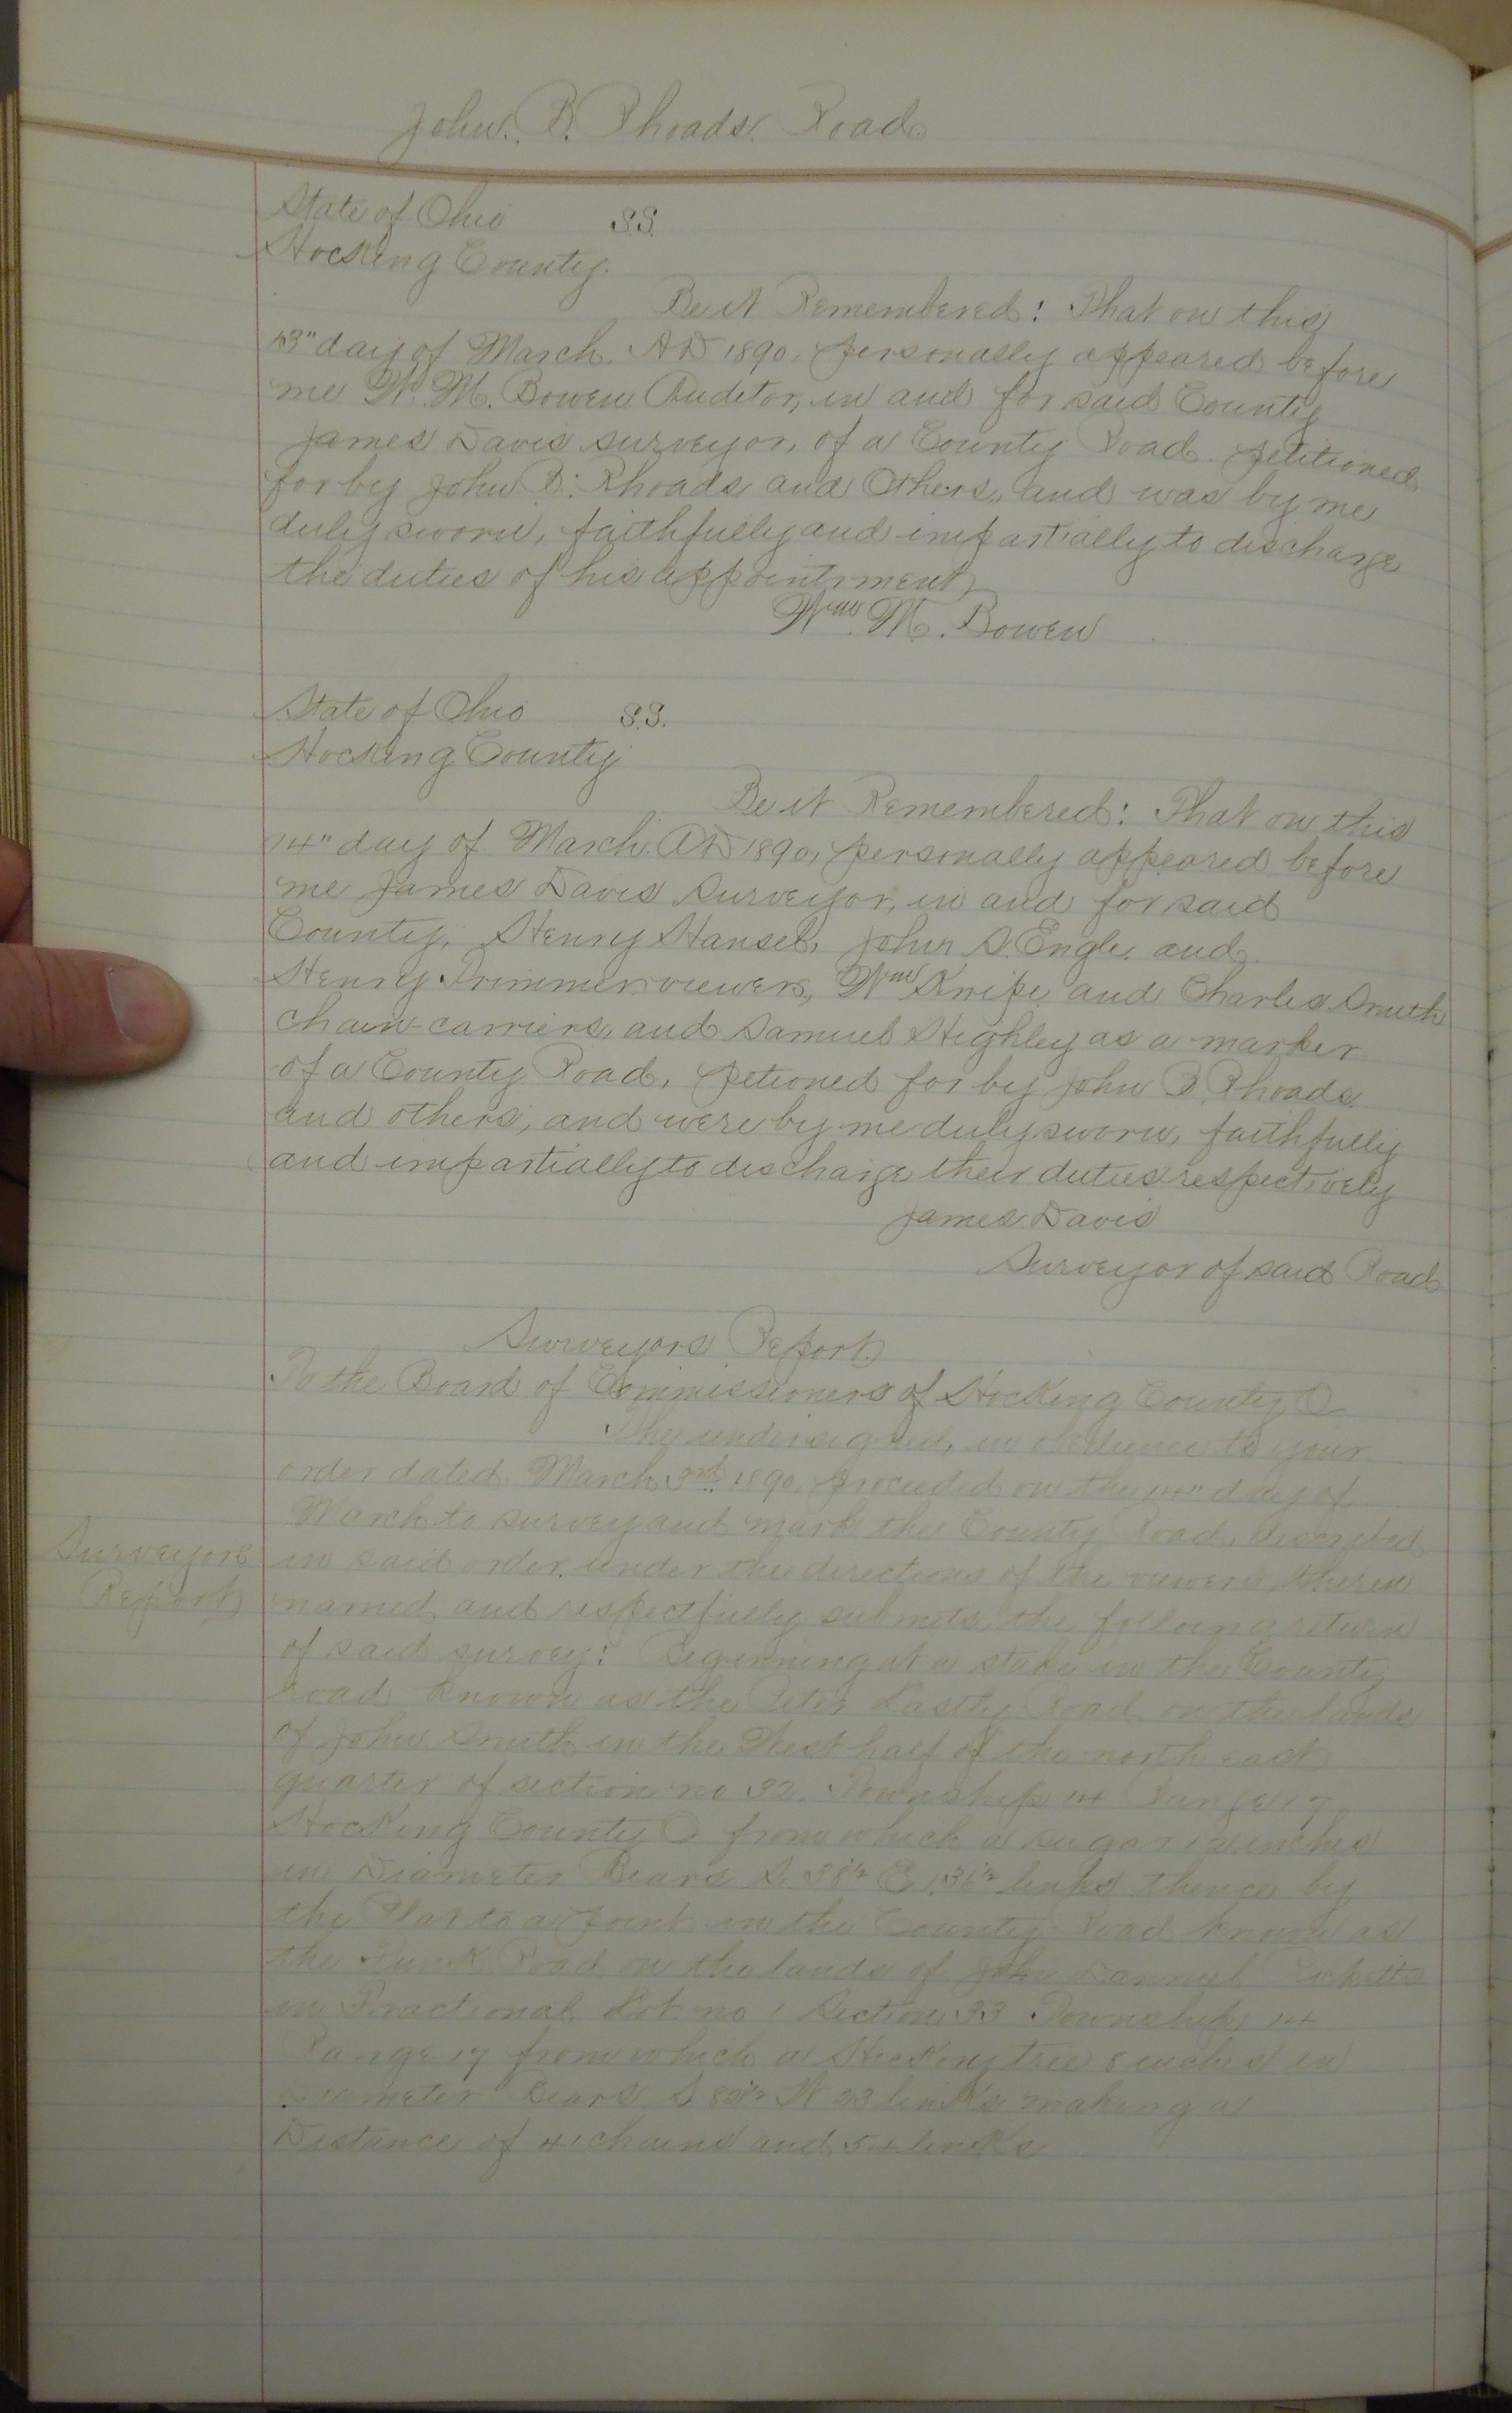 John. B. Rhoads. Road.
State of Ohio S.S.
Hocking County.
Be it Remembered: That on this
13" day of March. AD 1890, personally appeared before
me W. M. Bowen Auditor, in and for said County
James Davis surveyor, of a County Road. petitioned
for by John. B. Rhoads and Others, and was by me
duly sworn, faithfully and impartially to discharge
the duties of his appointment
Wm. M. Bowen
State of Ohio S.S.
Hocking County
Be it Remembered: That on this
14" day of March. AD 1890, personally appeared before
me James Davis Surveyor, in and for said
County, Henry Hansel, John S. Engle, and
Henry Primmer viewers, Wm Knipe and Charles Smith
chain-carriers, and Samuel Highley as a marker
of a County Road, petioned for by John B. Rhoads
and others, and were by me duly sworn, faithfully
and impartially to discharge their duties respectively
James Davis
Surveyor of said Road
Surveyors Report
To the Board of Commissioners of Hocking County O
The undersigned, in obedience to your
order dated March 3rd 1890, proceeded on the 14" day of
March to survey and mark the County Road, described
Surveyors
Report
in said order, under the directions of the viewers therein
named, and respectfully submits, the folloing return
of said survey: Beginning at a stake in the County
road known as the Peter Road on the lands
of John Smith in the West half of the north east
quarter of section no 32. Township 14 Range 17
Hocking County O from which a sugar 12 inches
in Diameter Bears S. 38½ E 36½ links thence by
the Plat to a Point in the County Road known as
the Funk Road on the lands of John
in Fractional Lot no 1 Section 33 Township 14
Range 17 from which a Hickory tree 8 inches in
Diameter Bears S 82½ W 23 links making a
Distance of 41 chains and 54 links